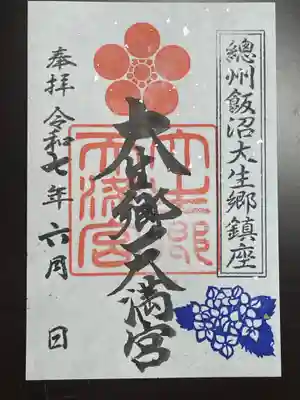 總州飯沼大生郷鎮座
大生郷天満宮
大生郷
天満宮
奉拝 令和七年 六月 日